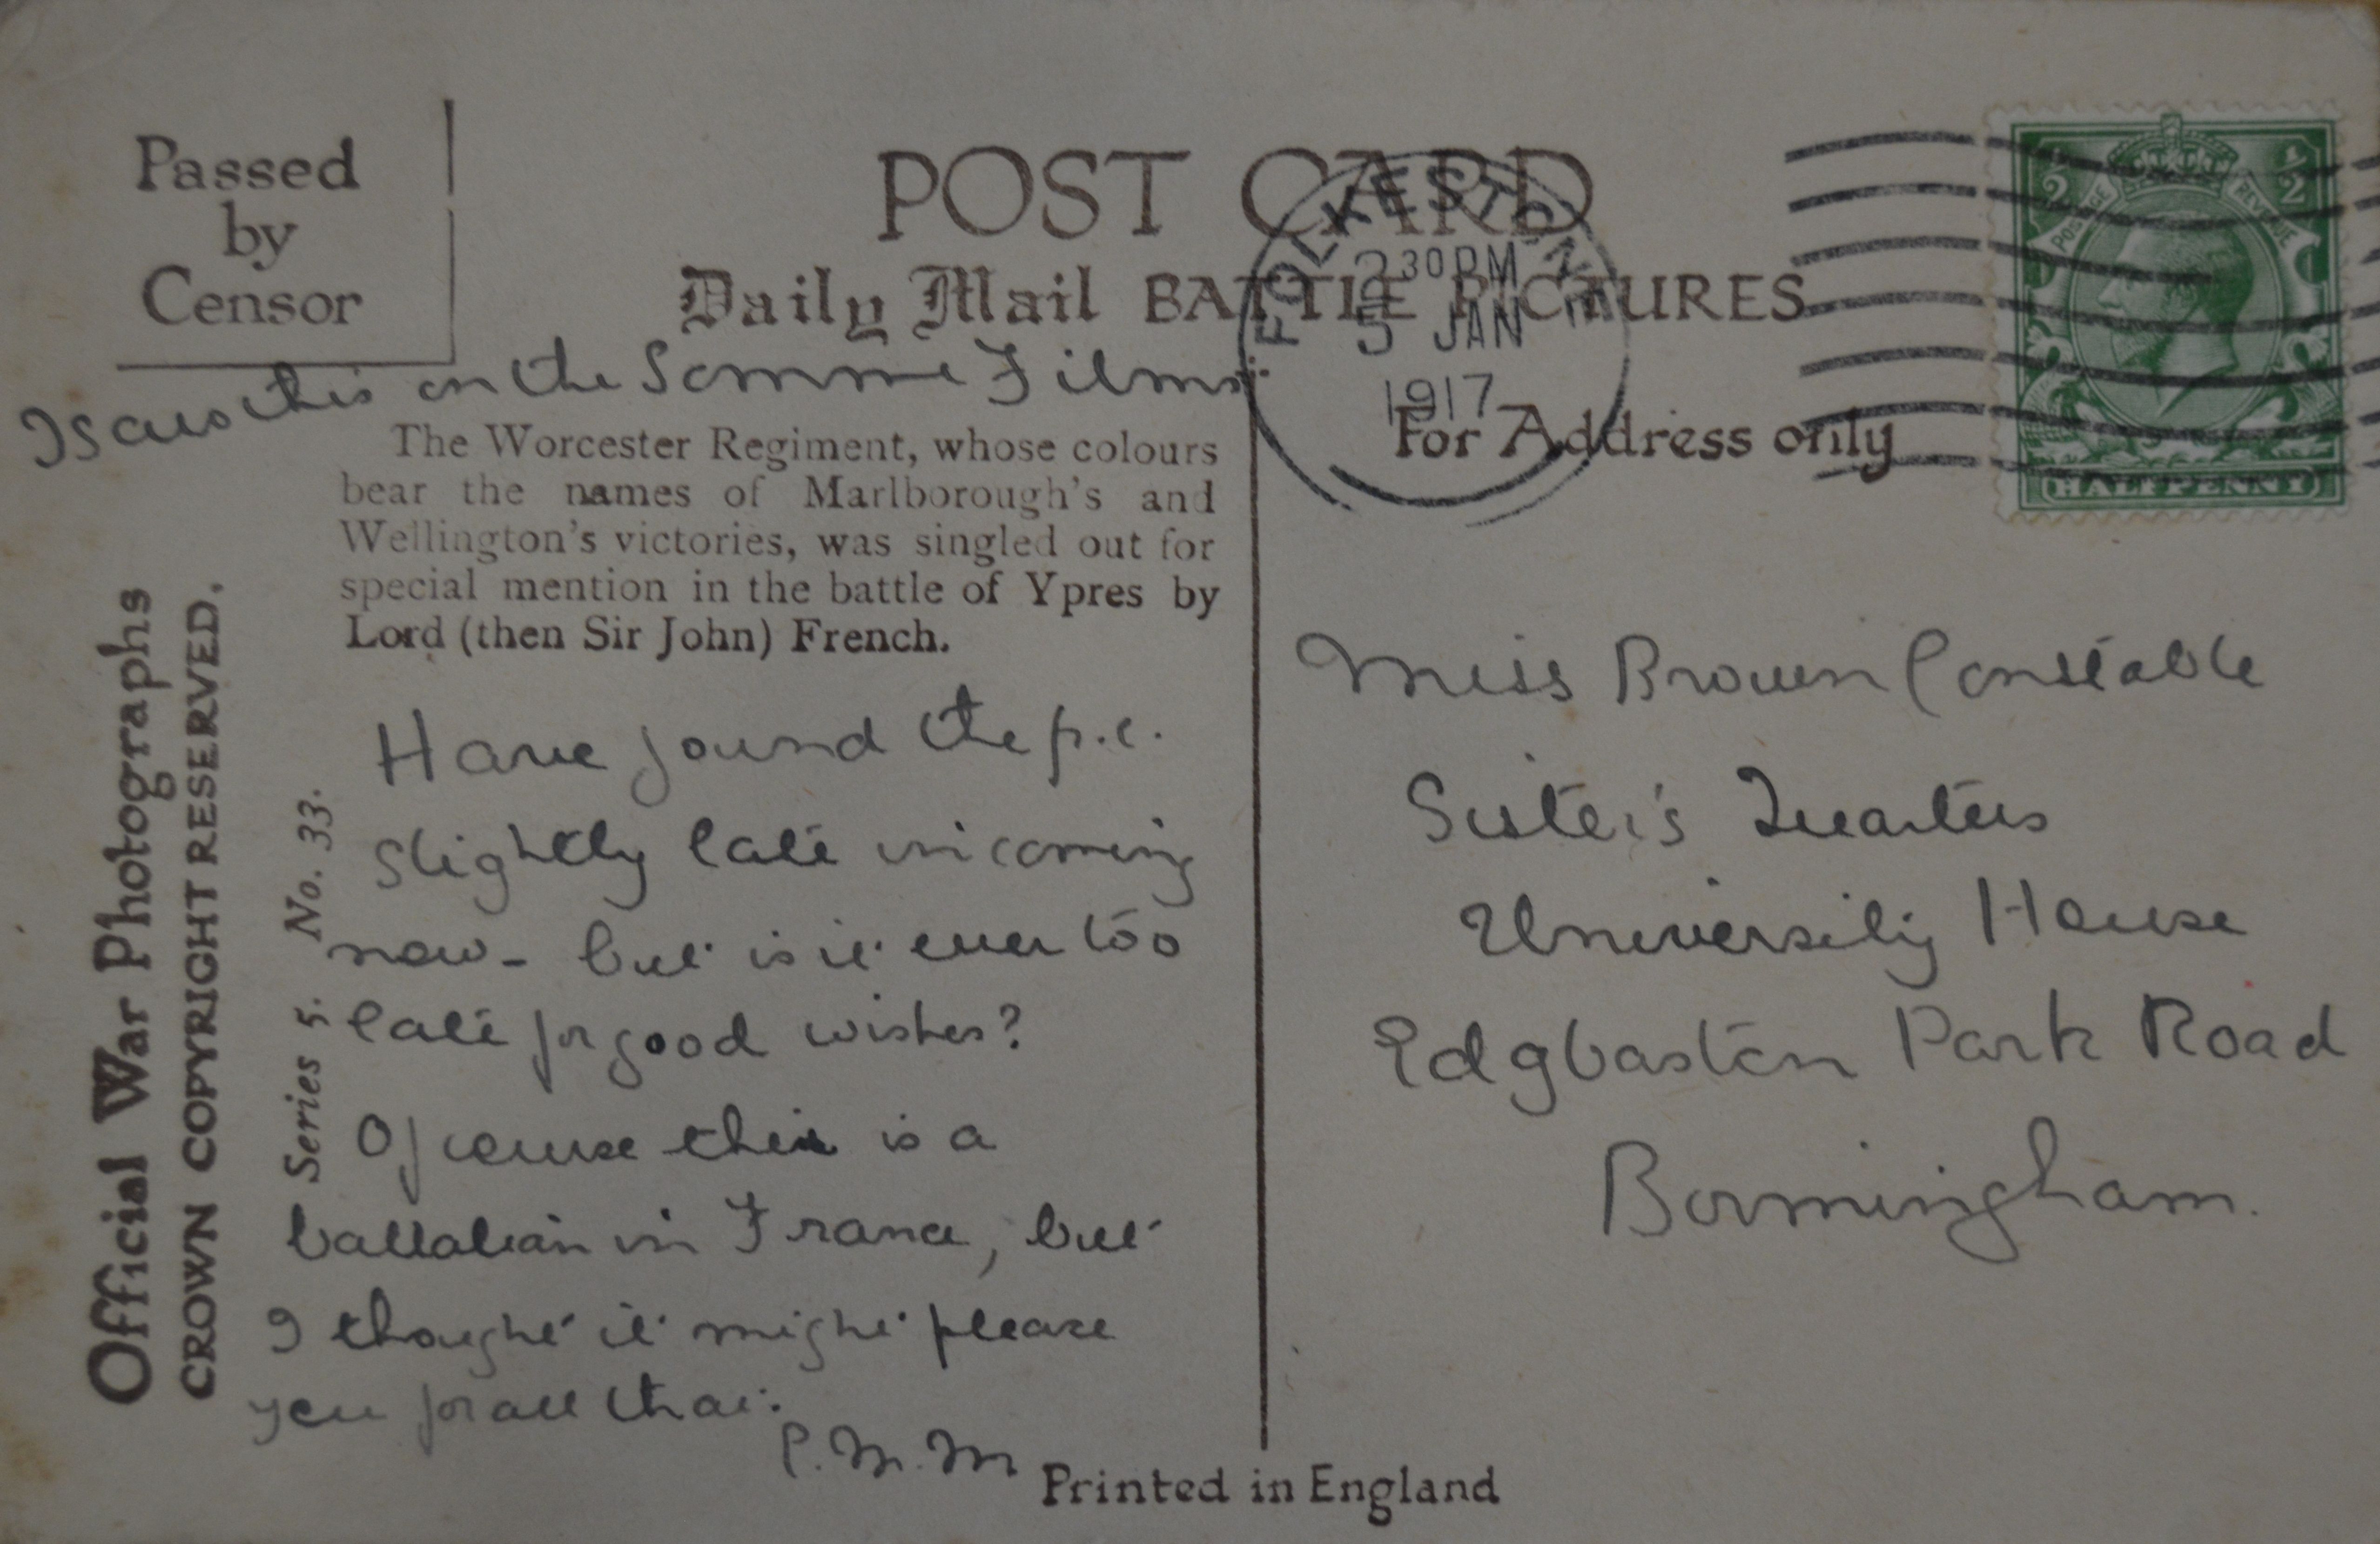 Passed
by
Censor
POST CARD
Daily Mail BATTLE PICTURES
FOLKESTONE
2 30 PM
5 JAN
1917
POSTAGE REVENUE
1/2 1/2
HALFPENNY
For Address only
I saw this on the Somme Films.
The Worcester Regiment, whose colours
bear the names of Marlborough's and
Wellington's victories, was singled out for
special mention in the battle of Ypres by
Lord (then Sir John) French.
Have found the p.c.
slightly late in coming
now - but is it ever too
late for good wishes?
Of course this is a
battalion in France, but
I thought it might please
you for all that.
P.M.M
Miss Brown Constable
Sister's Quarters
University House
Edgbaston Park Road
Birmingham.
Official War Photographs
CROWN COPYRIGHT RESERVED.
Series 5. No. 33.
Printed in England